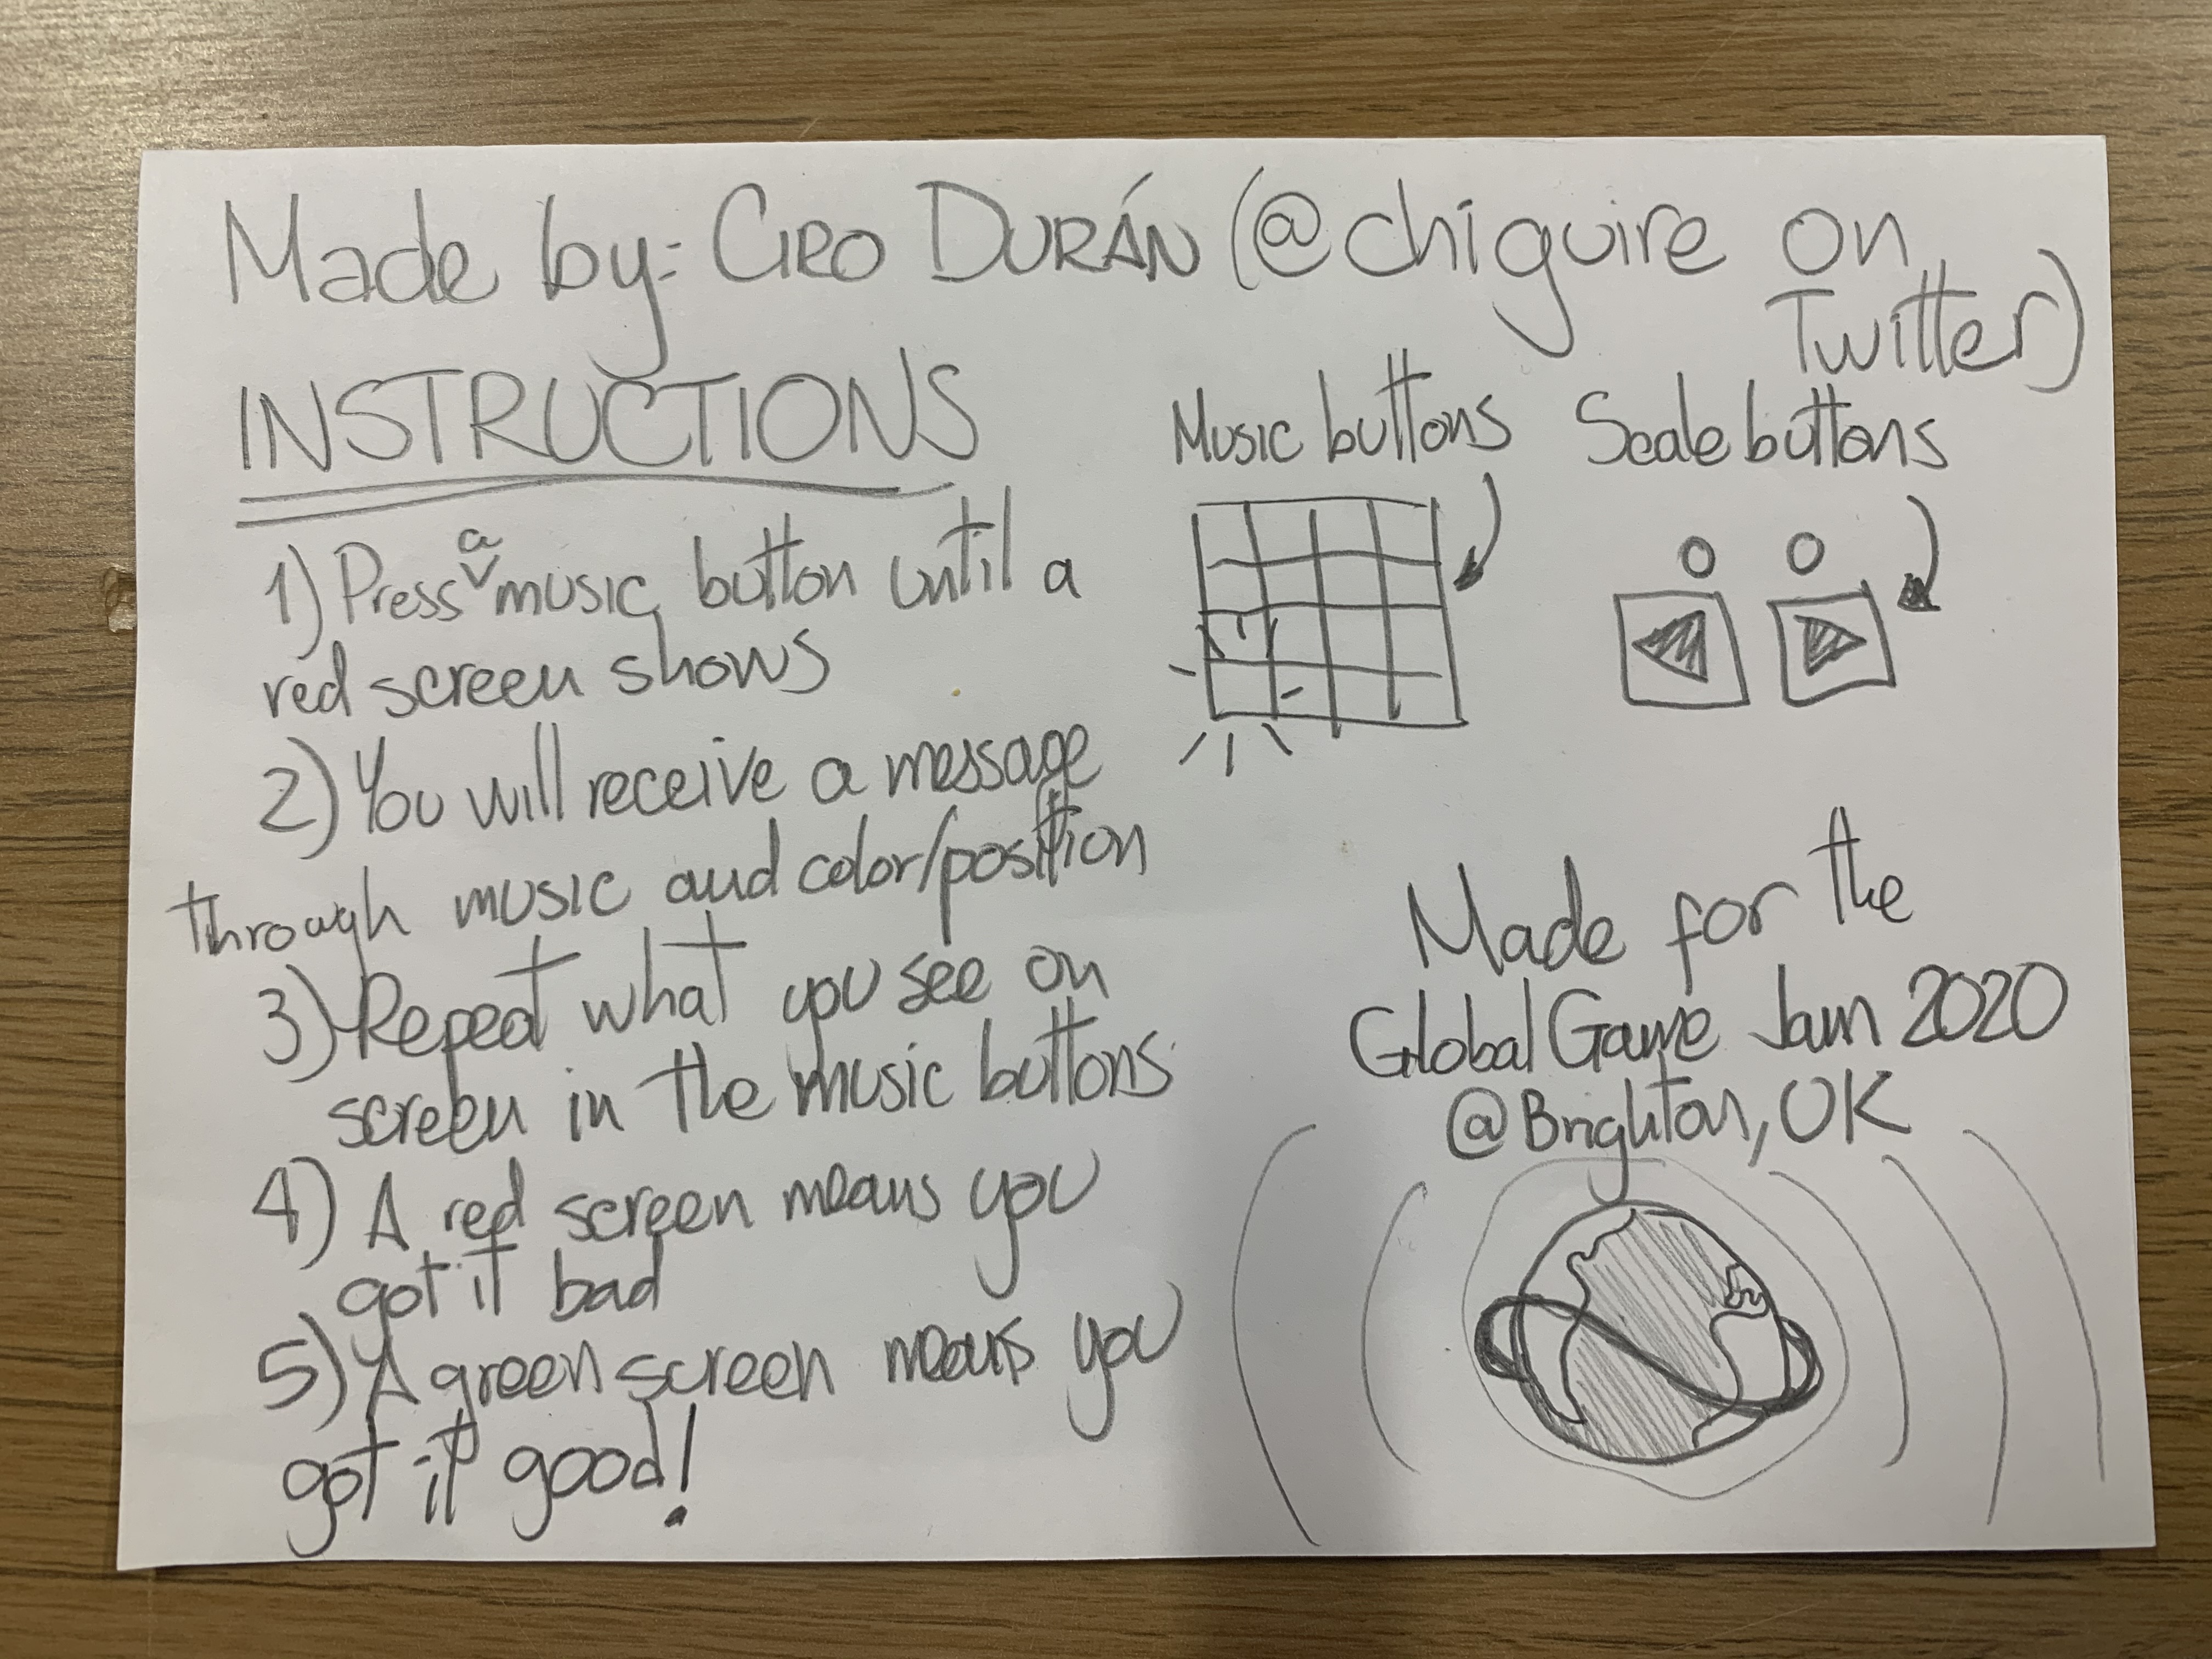 Made by: CIRO DURÁN (@chiguire on
Twitter)
INSTRUCTIONS
1) Press a music button until a
red screen shows
2) You will receive a message
through music and color/position
3) Repeat what you see on
screen in the music buttons
4) A red screen means you
got it bad
5) A green screen means you
got it good!
Music buttons
Scale buttons
Made for the
Global Game Jam 2020
@Brighton, UK